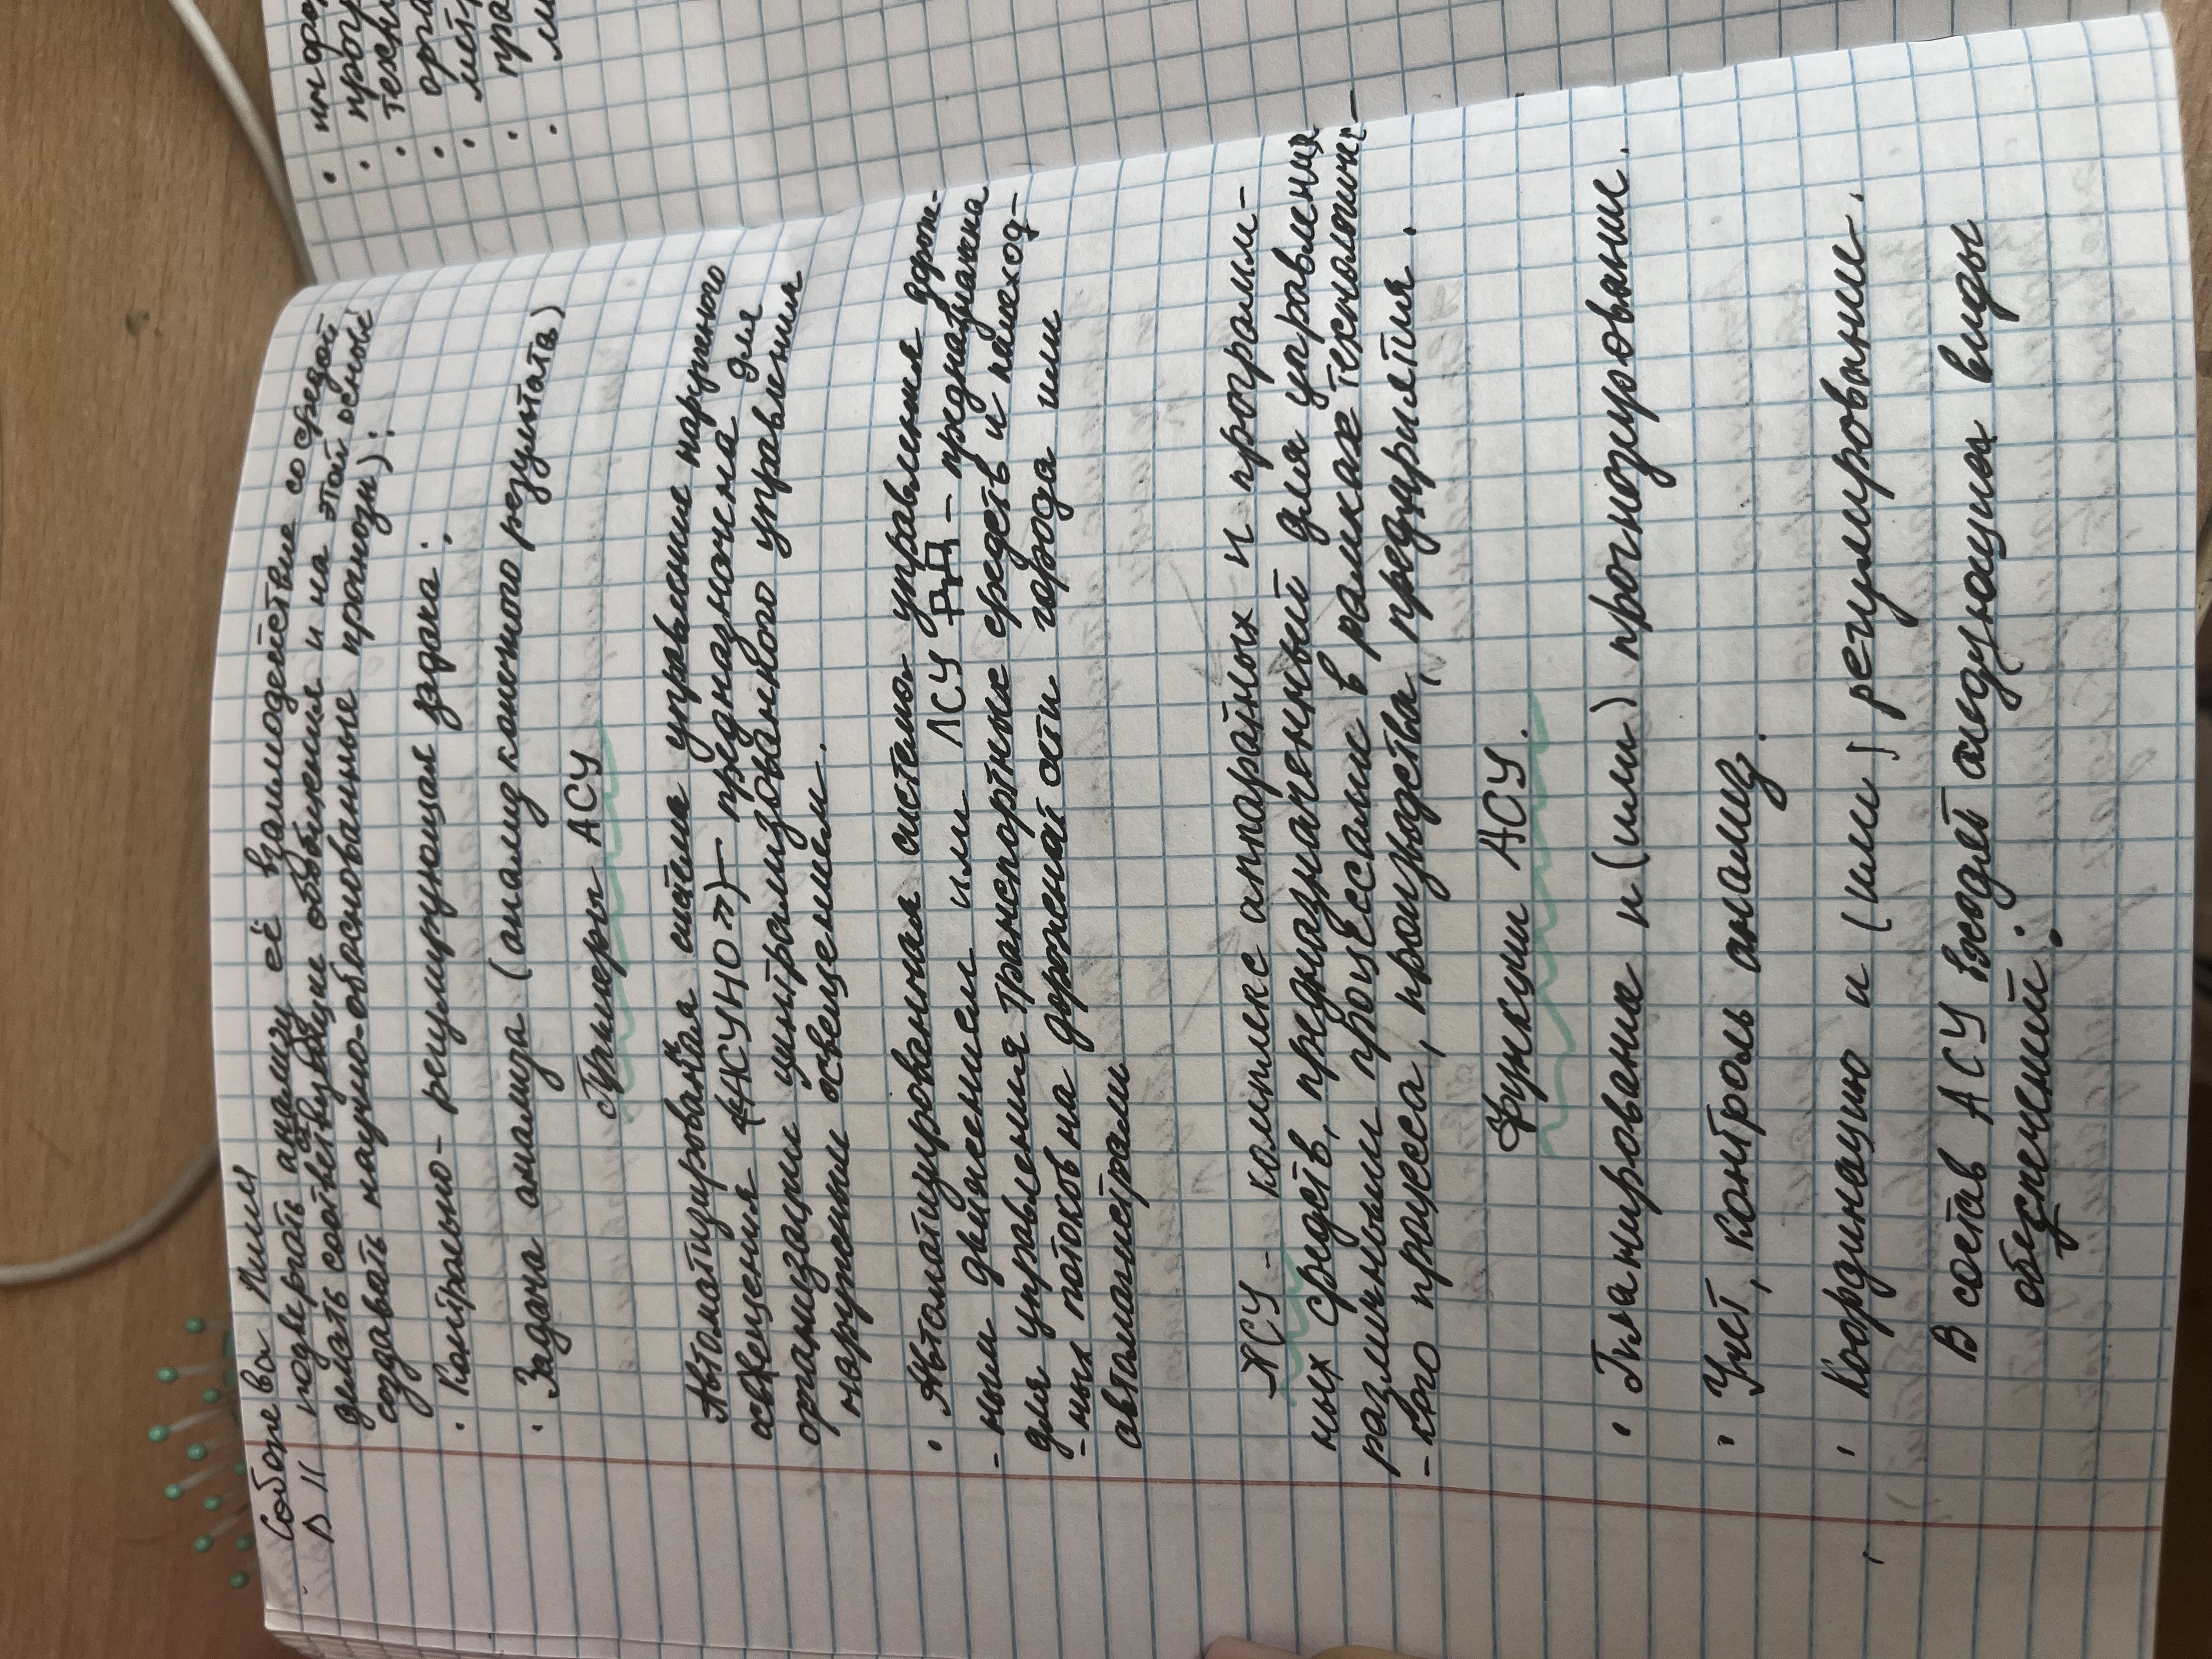 Соболева Лилия
подвергать анализу её взаимодействие со средой
делать соответствующие обобщения и на этой основе
создавать научно-обоснованные прогнозы);
· Контрольно- регулирующая задача;
· Задача анализа (анализ конечного результата)
Примеры АСУ
Автоматизированая система управление наружного
освещения («АСУНО») — предназначена для
организации централизованного управления
наружным освещением.
· Автоматизированная система управления дорож-
-ным движением или АСУ ДД - предназначена
для управления транспортные средств и пешеход-
-ных потоков на дорожной сети города или
автомагистрали
АСУ - комплекс аппаратных и программ-
ных средств, предназначенный для управления
различными процессами в рамках технологичес-
-кого процесса, производства, предприятия.
Функции АСУ.
· Планирование и (или) прогнозирование.
· Учет, контроль анализ.
· Координацию и (или) регулирование.
В состав АСУ входят следующие виды
обеспечений:
· прог
· техни
· орга